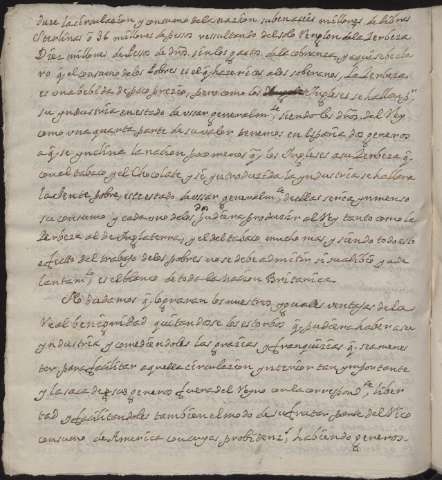 duce la circulazion y consumo dela nazion suben aseis millones de libras
Sterlinas ō 36 millones de pesos resultando del solo Renglon dela Zerbeza
Diez millones de pesos de dros. sin los gastos de la cobranza, y aqui se be cla
ro q. el consumo delos Pobres es el q. haze ricos alos soberanos, La Zerbeza
es una bebida de poco prezio, pero como los Ingleses se hallan pr.
su yndustria en estado de usar generalmte. siendo los dros. del Rey
como una quarta parte de su valor tenemos en España dos generos
a q. se ynclina la nazion poco menos q. los Yngleses a su Zerbeza q.
son el tabaco y el Chocolate, y si yntroduzida la yndustria se hallara
la Jente pobre, en estado de usar generalmte. de ellas sería ynmenso
su consumo, y cada uno de los dos pudiera produzir al Rey tanto como la
Zerbeza al de Inglaterra, y el del tabaco mucho mas, y siendo todo esto
efecto del trabajo delos pobres no se debe admirar si su alibio y ade
lantamto. es el blanco de toda la nazion Britanica.
No dudemos q. lograran los nuestros yguales ventajas de la
Real benignidad quitandose los estorbos q. pudiera haber a su
yndustria y conzediendoles las grazias y franquizias q. sea menes
ter para facilitar aquella circulazion ynterior tan ymportante
y la saca de esos generos fuera del Reyno con la correspondte. liber
tad y facilitandoles tambien el modo de disfrutar parte del Rico
consumo de America con cuyas probidenzs. habiendo generos